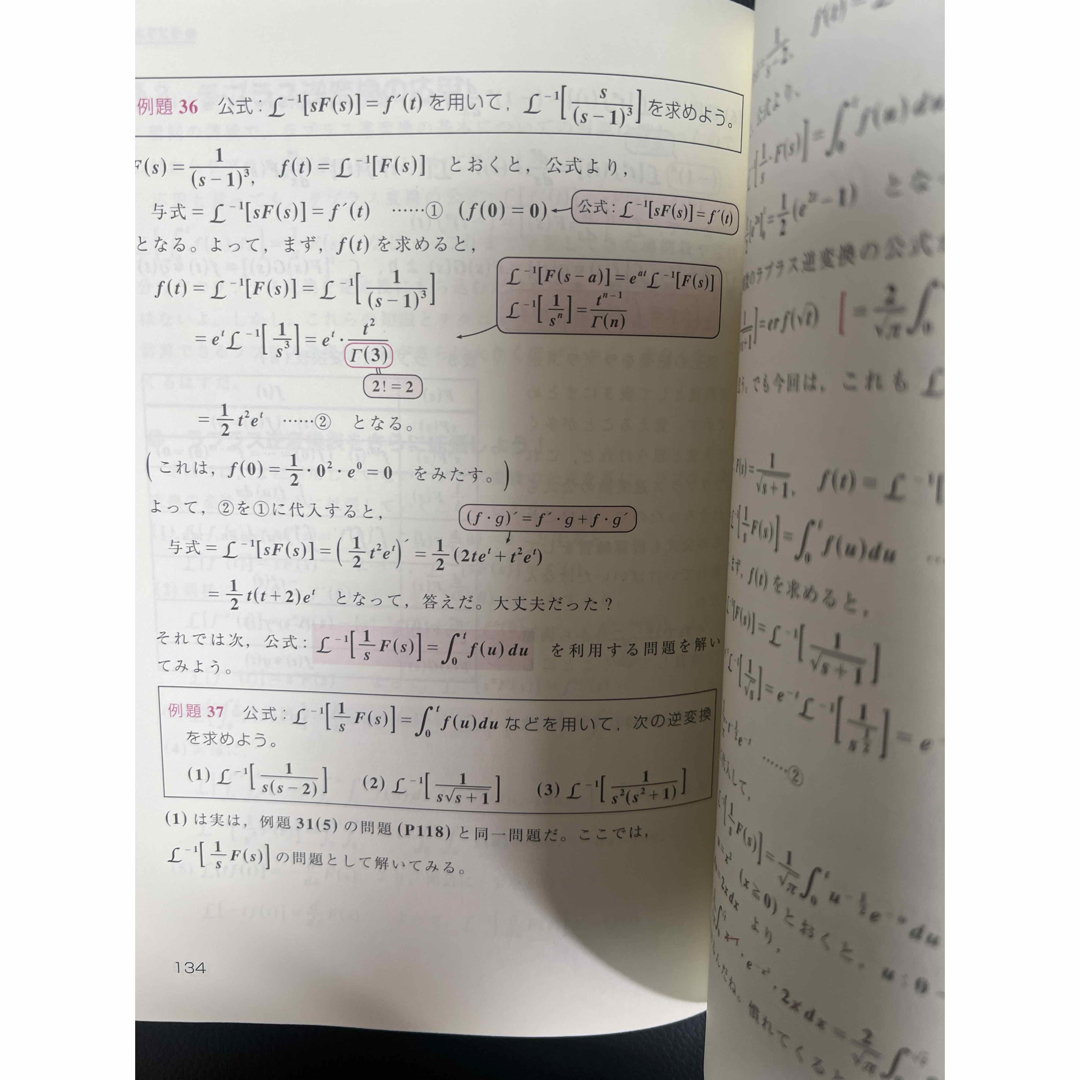 例題 36 公式：ℒ⁻¹[sF(s)] = f´(t) を用いて，ℒ⁻¹[s/(s−1)³] を求めよう。
F(s) = 1/(s−1)³, f(t) = ℒ⁻¹[F(s)] とおくと，公式より，
与式 = ℒ⁻¹[sF(s)] = f´(t) ……① (f(0) = 0) 公式：ℒ⁻¹[sF(s)] = f´(t)
となる。よって，まず，f(t) を求めると，
f(t) = ℒ⁻¹[F(s)] = ℒ⁻¹[1/(s−1)³]
ℒ⁻¹[F(s−a)] = eᵃᵗℒ⁻¹[F(s)]
ℒ⁻¹[1/sⁿ] = tⁿ⁻¹/Γ(n)
= eᵗℒ⁻¹[1/s³] = eᵗ · t²/Γ(3)
2! = 2
= 1/2 t²eᵗ ……② となる。
(これは，f(0) = 1/2 · 0² · e⁰ = 0 をみたす。)
よって，②を①に代入すると，
(f · g)´ = f´ · g + f · g´
与式 = ℒ⁻¹[sF(s)] = (1/2 t²eᵗ)´ = 1/2 (2teᵗ + t²eᵗ)
= 1/2 t(t + 2)eᵗ となって，答えだ。大丈夫だった？
それでは次，公式：ℒ⁻¹[1/s F(s)] = ∫₀ᵗ f(u)du を利用する問題を解い
てみよう。
例題 37 公式：ℒ⁻¹[1/s F(s)] = ∫₀ᵗ f(u)du などを用いて，次の逆変換
を求めよう。
(1) ℒ⁻¹[1/s(s−2)] (2) ℒ⁻¹[1/s√(s+1)] (3) ℒ⁻¹[1/s²(s²+1)]
(1) は実は，例題 31(5) の問題 (P118) と同一問題だ。ここでは，
ℒ⁻¹[1/s F(s)] の問題として解いてみる。
134
1/2(e²ᵗ−1) とな
のラプラス逆変換の公式
= erf(√t)
でも今回は，これも ℒ
= 1/√(s+1), f(t) = ℒ⁻¹
F(s)] = ∫₀ᵗ f(u)du
f(t) を求めると，
[F(s)] = ℒ⁻¹[1/√(s+1)]
……②
(x≧0) とおくと，u：0
より，
慣れてくると